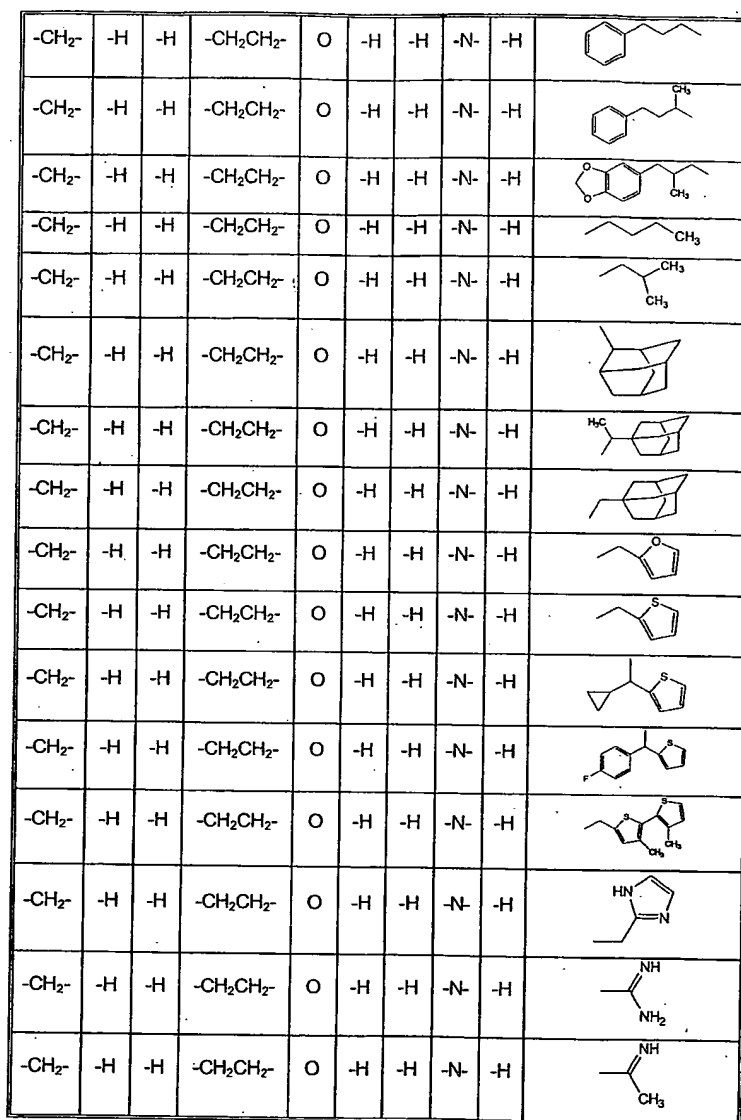 -CH₂- -H -H -CH₂CH₂- O -H -H -N- -H
CH₃
-CH₂- -H -H -CH₂CH₂- O -H -H -N- -H
O
-CH₂- -H -H -CH₂CH₂- O -H -H -N- -H
O CH₃
-CH₂- -H -H -CH₂CH₂- O -H -H -N- -H CH₃
CH₃
-CH₂- -H -H -CH₂CH₂- O -H -H -N- -H
CH₃
-CH₂- -H -H -CH₂CH₂- O -H -H -N- -H
H₃C
-CH₂- -H -H -CH₂CH₂- O -H -H -N- -H
-CH₂- -H -H -CH₂CH₂- O -H -H -N- -H
-CH₂- -H -H -CH₂CH₂- O -H -H -N- -H O
-CH₂- -H -H -CH₂CH₂- O -H -H -N- -H S
-CH₂- -H -H -CH₂CH₂- O -H -H -N- -H S
-CH₂- -H -H -CH₂CH₂- O -H -H -N- -H S
F
S
-CH₂- -H -H -CH₂CH₂- O -H -H -N- -H S
CH₃ CH₃
-CH₂- -H -H -CH₂CH₂- O -H -H -N- -H HN
N
-CH₂- -H -H -CH₂CH₂- O -H -H -N- -H NH
NH₂
-CH₂- -H -H -CH₂CH₂- O -H -H -N- -H NH
CH₃